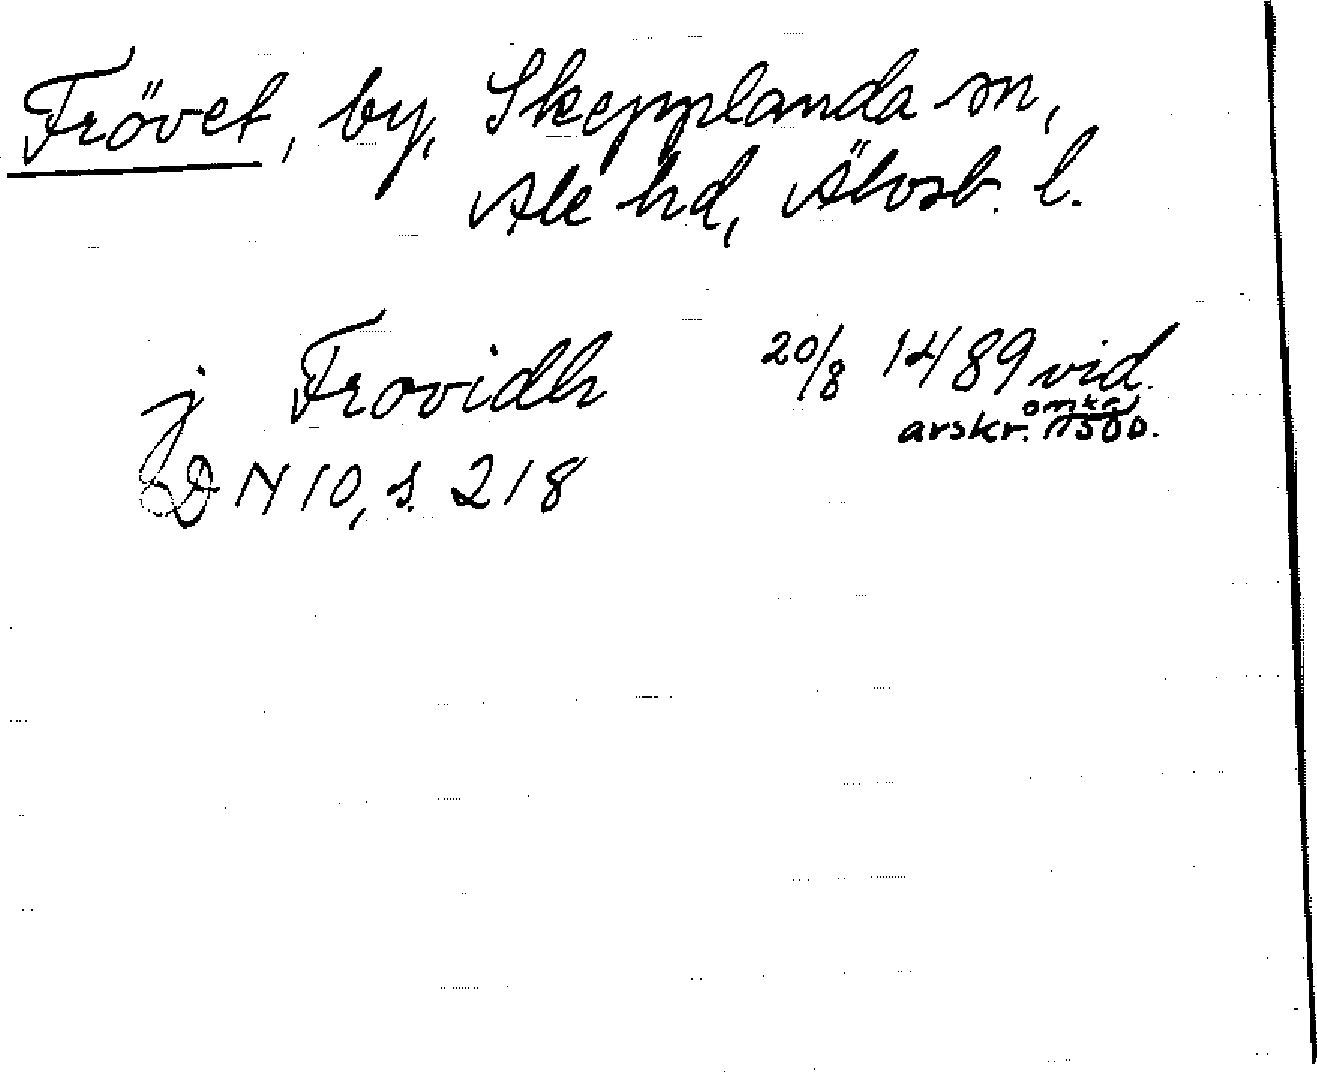 Frövet, by, Skepplanda sn,
Ale hd, Älvsb. l.
j Frovidh 20/8 1489 vid.
avskr. omkr. 1500.
DN 10, s. 218